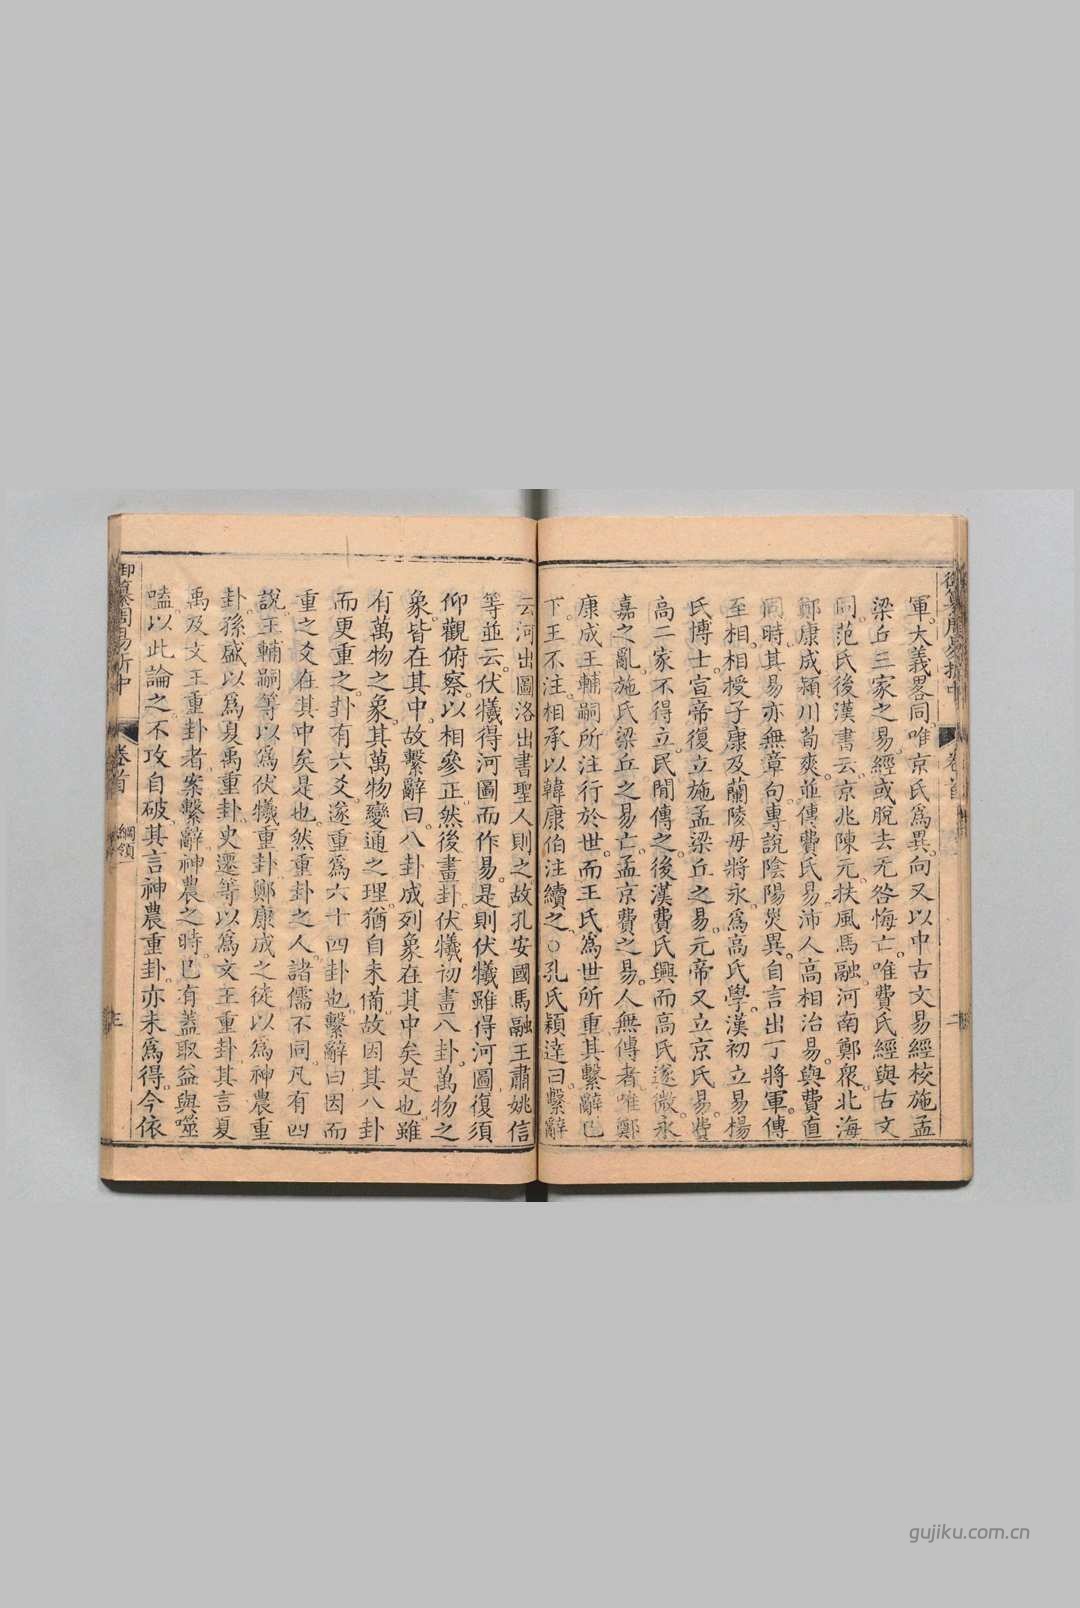 軍。大義畧同。唯京氏爲異。向又以中古文易經校施孟
梁丘三家之易。經或脫去无咎悔亡。唯費氏經與古文
同。范氏後漢書云。京兆陳元。扶風馬融。河南鄭眾。北海
鄭康成。潁川荀爽。並傳費氏易。沛人高相治易。與費直
同時。其易亦無章句。專說陰陽災異。自言出丁將軍。傳
至相。相授子康及蘭陵毋將永。爲高氏學。漢初立易楊
氏博士。宣帝復立施孟梁丘之易。元帝又立京氏易。費
高二家不得立。民閒傳之。後漢費氏興而高氏遂微。永
嘉之亂。施氏梁丘之易亡。孟京費之易。人無傳者。唯鄭
康成王輔嗣所注行於世。而王氏爲世所重。其繫辭已
下。王不注。相承以韓康伯注續之。○孔氏穎達曰。繫辭
云。河出圖洛出書聖人則之。故孔安國馬融王肅姚信
等並云。伏犧得河圖而作易。是則伏犧雖得河圖。復須
仰觀俯察。以相參正。然後畫卦。伏犧初畫八卦。萬物之
象。皆在其中。故繫辭曰。八卦成列。象在其中矣是也。雖
有萬物之象。其萬物變通之理。猶自未備。故因其八卦
而更重之。卦有六爻。遂重爲六十四卦也。繫辭曰。因而
重之。爻在其中矣是也。然重卦之人。諸儒不同。凡有四
說。王輔嗣等以爲伏犧重卦。鄭康成之徒以爲神農重
卦。孫盛以爲夏禹重卦。史遷等以爲文王重卦。其言夏
禹及文王重卦者。案繫辭神農之時。已有蓋取益與噬
嗑。以此論之。不攻自破。其言神農重卦。亦未爲得。今依
御纂周易折中
卷首
綱領一
三
gujiku.com.cn